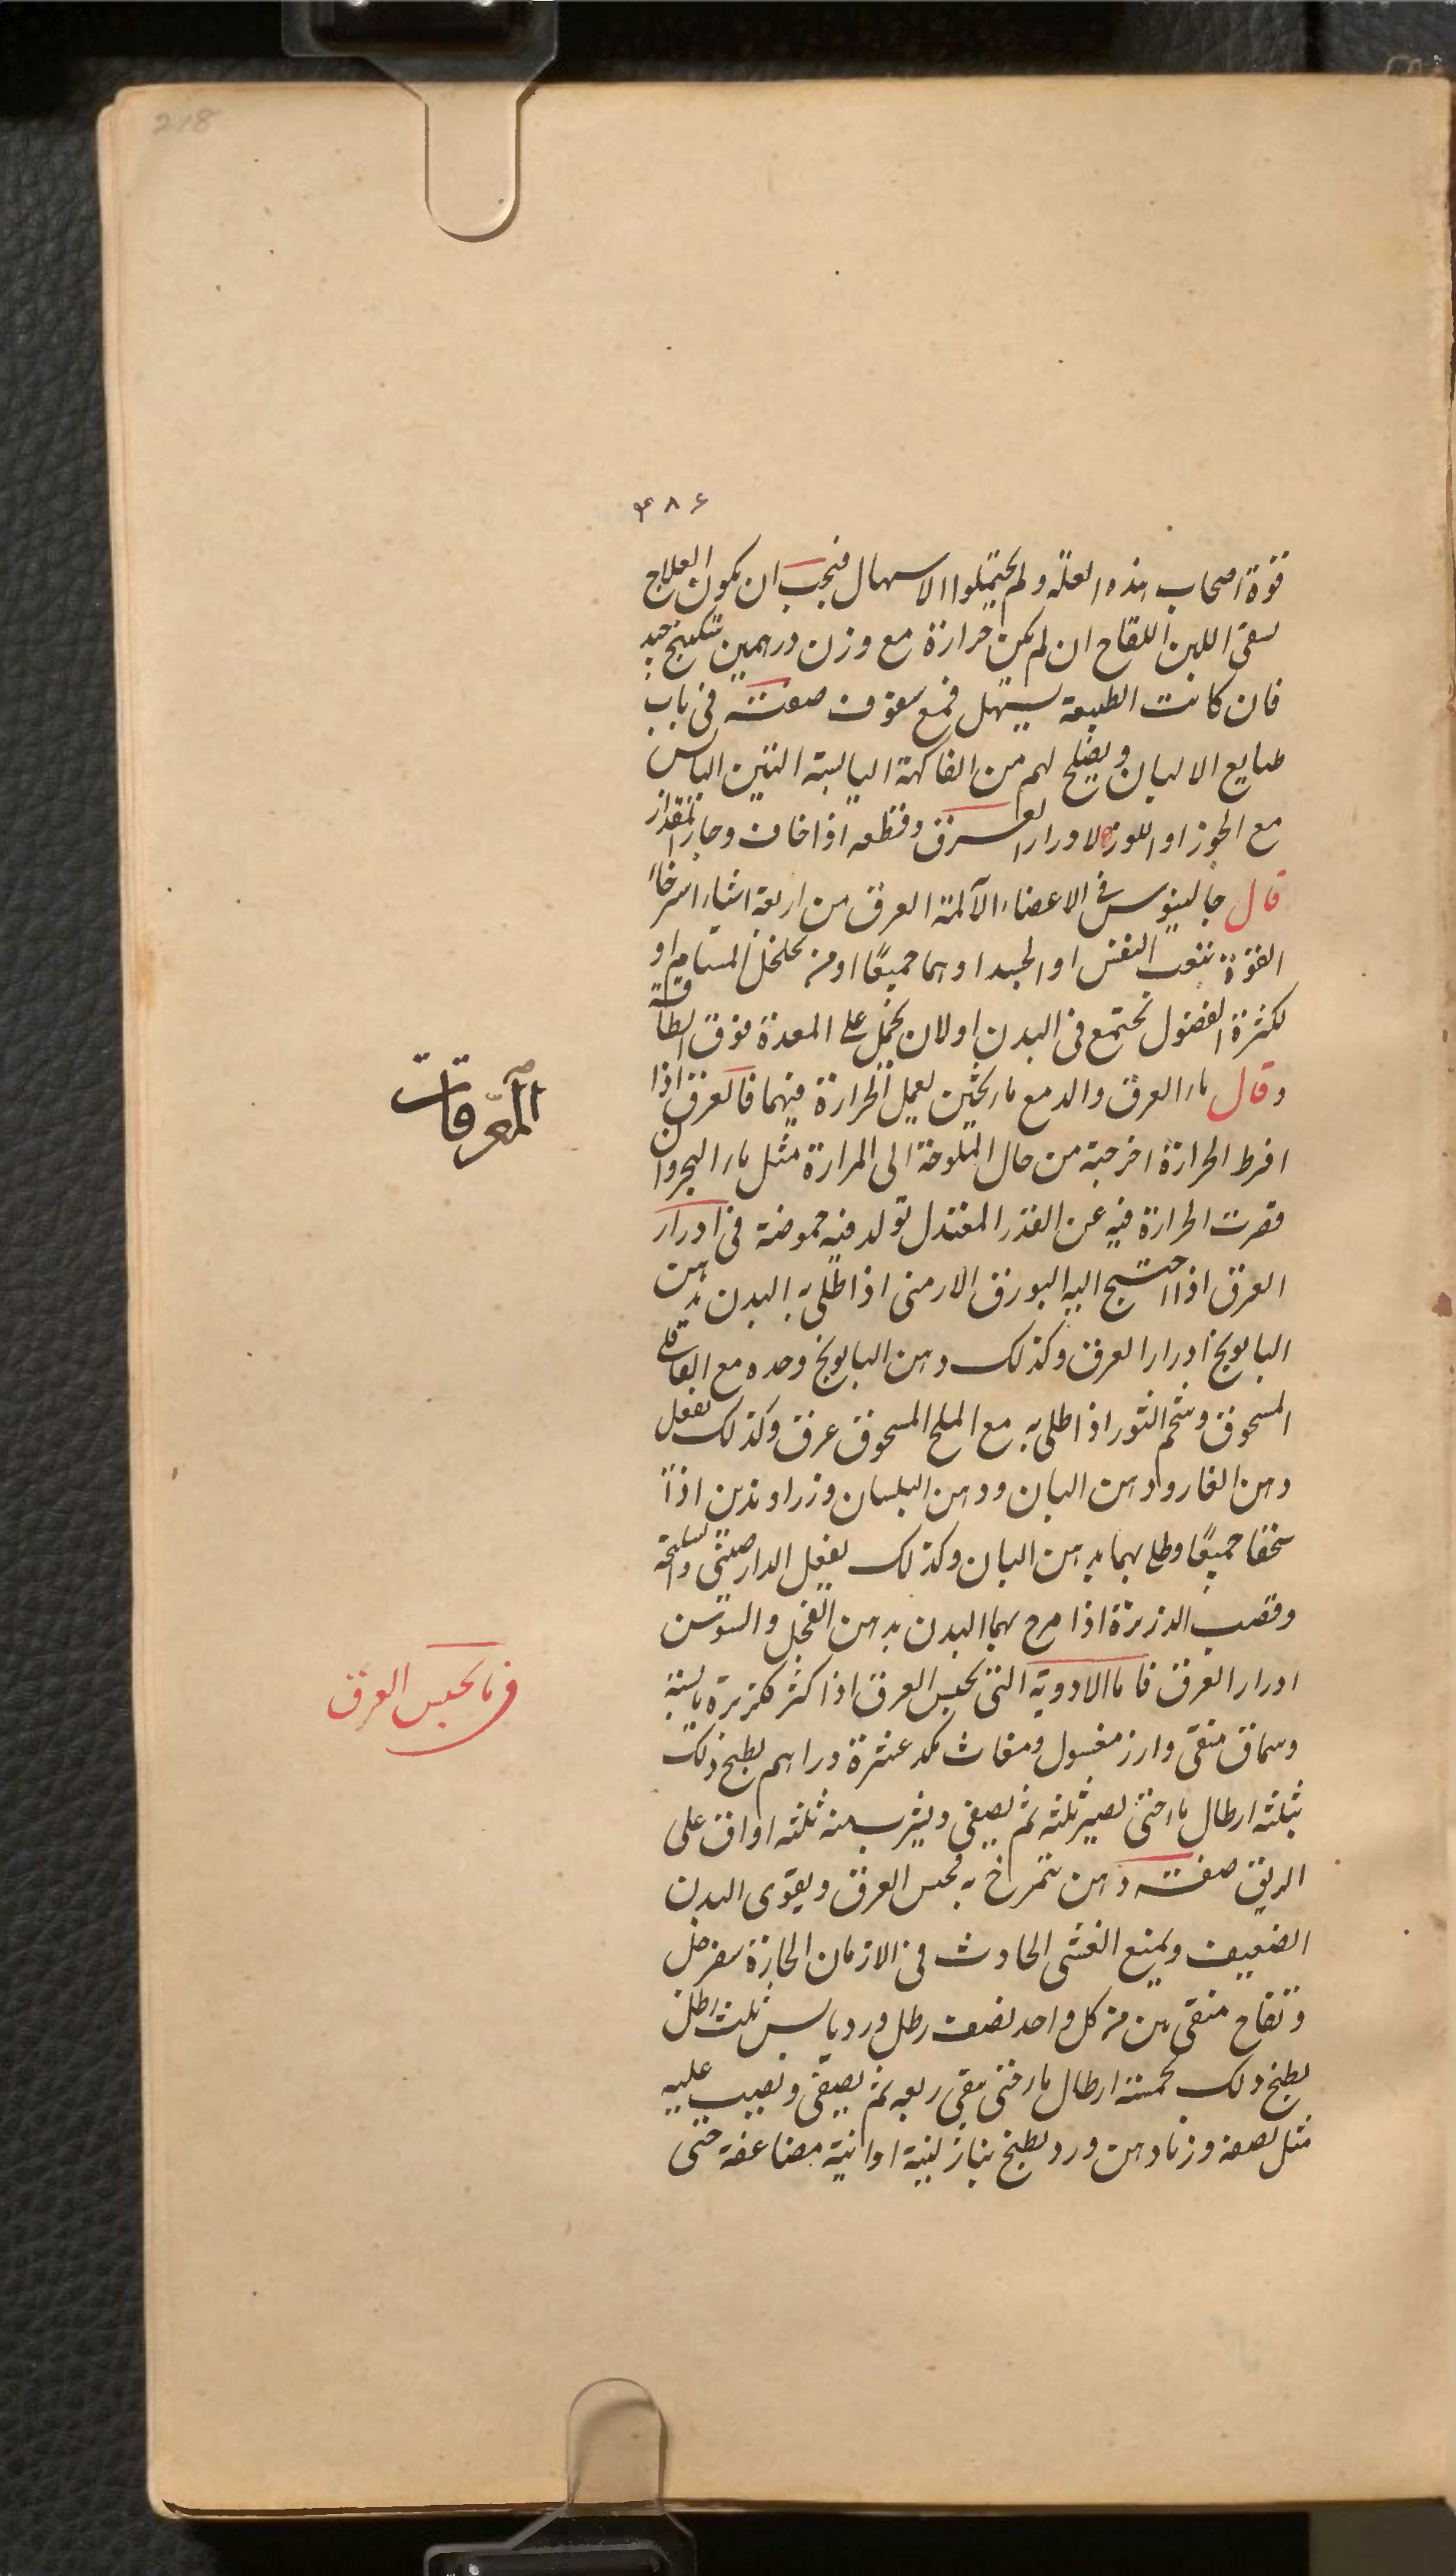 218
۴۸۶
قوة اصحاب هذه العلة ولم يحتملوا الاسهال فيجب ان يكون العلاج
بسقى اللبن اللقاح ان لم يكن حرارة مع وزن درهمين سكبينج جيد
فان كانت الطبيعة يسهل فمع سفوف صفته فى باب
طبايع الالبان ويصلح لهم من الفاكهة اليابسة التين اليابس
مع الجوز او اللوز لادرار العرق وقطعه اذا خاف وجاز المقدار
قال جالينوس فى الاعضاء الآلمة العرق من اربعة اشياء استرخاء
القوة بتعب النفس او الجسد او هما جميعًا او من تخلخل المسام او
لكثرة الفضول تجتمع فى البدن او لان يحمل على المعدة فوق الطاقة
وقال ماء العرق والدمع مالحين لعمل الحرارة فيهما فالعرق اذا
افرط الحرارة اخرجته من حال الملوحة الى المرارة مثل ماء البحر وان
قصرت الحرارة فيه عن القدر المعتدل تولد فيه حموضة فى ادرار
العرق اذا احتيج اليه البورق الارمنى اذا طلى به البدن بدهن
البابونج ادرار العرق وكذلك دهن البابونج وحده مع القاقلى
المسحوق وشحم الثور اذا طلى به مع الملح المسحوق عرق وكذلك يفعل
دهن الغار ودهن البان ودهن البلسان وزراوندين اذا
سحقا جميعًا وطلى بهما بدهن البان وكذلك يفعل الدارصينى والسليخة
وقصب الذريرة اذا مرخ بهما البدن بدهن الفجل والسوسن
ادرار العرق فاما الادوية التى تحبس العرق اذا كثر كزبرة يابسة
وسماق منقى وارز مغسول ومغاث مكد عشرة دراهم يطبخ ذلك
بثلثه ارطال ماء حتى يصير ثلثه ثم يصفى ويشرب منه ثلثه اواق على
الريق صفته دهن يتمرخ به يحبس العرق ويقوى البدن
الضعيف ويمنع الغشى الحادث فى الازمان الحارة سفرجل
وتفاح منقى من كل واحد نصف رطل ورد يابس ثلث رطل
يطبخ ذلك بخمسة ارطال ماء حتى يبقى ربعه ثم يصفى ويصب عليه
مثل نصفه وزنا دهن ورد يطبخ بنار لينة اوانية مضاعفة حتى
المعرقات
فى ما يحبس العرق